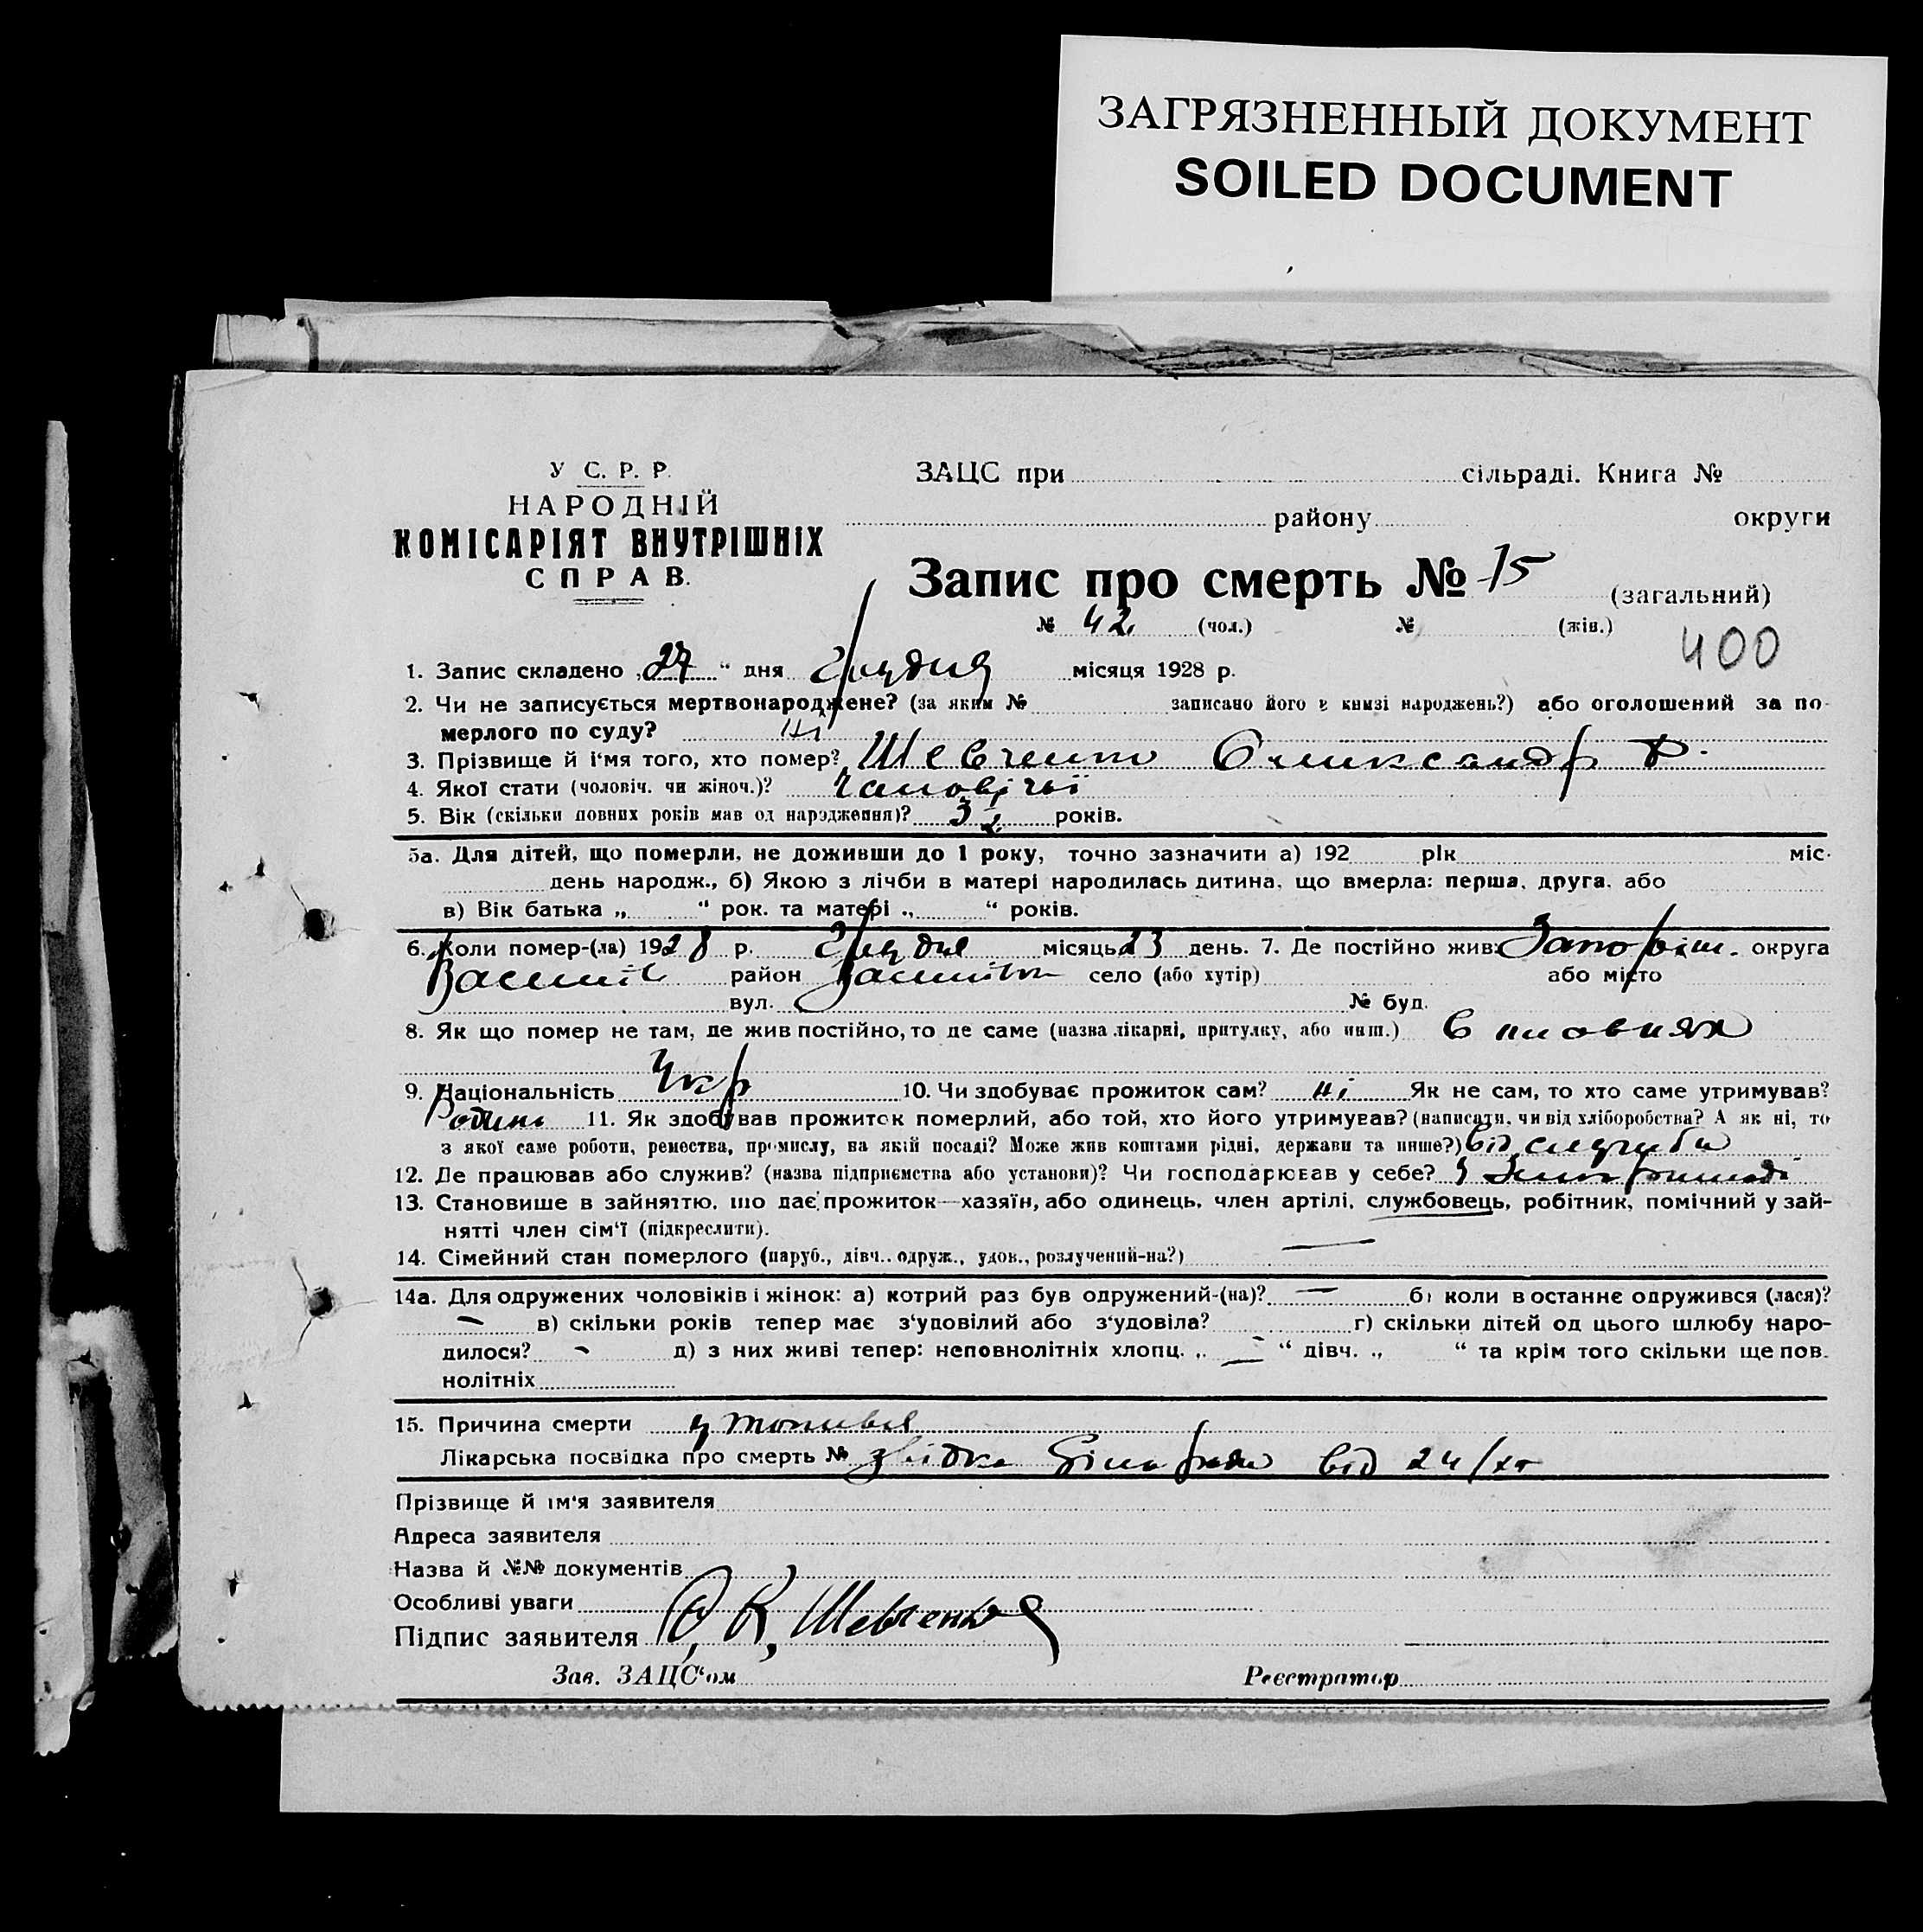 ЗАГРЯЗНЕННЫЙ ДОКУМЕНТ
SOILED DOCUMENT
У С. Р. Р.
НАРОДНІЙ
КОМІСАРІЯТ ВНУТРІШНІХ
СПРАВ.
ЗАЦС при сільраді. Книга №
району округи
Запис про смерть № 75 (загальний)
№ 42 (чол.) № (жін.)
400
1. Запис складено „27“ дня Грудня місяця 1928 р.
2. Чи не записується мертвонароджене? (за яким № записано його в книзі народжень?) або оголошений за по-
мерлого по суду? Ні
3. Прізвище й ім'я того, хто помер? Шевченко Олександр Ф.
4. Якої стати (чоловіч. чи жіноч.)? чоловічої
5. Вік (скільки повних років мав од народження)? 32 років.
5а. Для дітей, що померли, не доживши до 1 року, точно зазначити а) 192 рік міс.
день народж., б) Якою з лічби в матері народилась дитина, що вмерла: перша, друга, або
в) Вік батька „ “ рок. та матері „ “ років.
6. Коли помер-(ла) 1928 р. Грудня місяць 23 день. 7. Де постійно жив: Запоріж. округа
район село (або хутір) або місто
вул. № буд.
8. Як що помер не там, де жив постійно, то де саме (назва лікарні, притулку, або инш.) в
9. Національність Укр 10. Чи здобуває прожиток сам? ні Як не сам, то хто саме утримував?
Родина 11. Як здобував прожиток померлий, або той, хто його утримував? (написати, чи від хліборобства? А як ні, то
з якої саме роботи, ремества, промислу, на якій посаді? Може жив коштами рідні, держави та инше?) від служби
12. Де працював або служив? (назва підприємства або установи)? Чи господарював у себе? у
13. Становише в зайняттю, що дає прожиток—хазяїн, або одинець, член артілі, службовець, робітник, помічний у зай-
нятті член сім'ї (підкреслити).
14. Сімейний стан померлого (паруб., дівч., одруж., удов., розлучений-на?) —
14а. Для одружених чоловіків і жінок: а) котрий раз був одружений-(на)? — б) коли в останнє одружився (лася)?
— в) скільки років тепер має з'уповілий або з'удовіла? г) скільки дітей од цього шлюбу наро-
дилося? — д) з них живі тепер: неповнолітніх хлопц. „ — “ дівч. „ “ та крім того скільки ще пов.
нолітніх
15. Причина смерти утопився
Лікарська посвідка про смерть № від 24/
Прізвище й ім'я заявителя
Адреса заявителя
Назва й №№ документів
Особливі уваги
Підпис заявителя Шевченко
Зав. ЗАЦС'ом Реєстратор